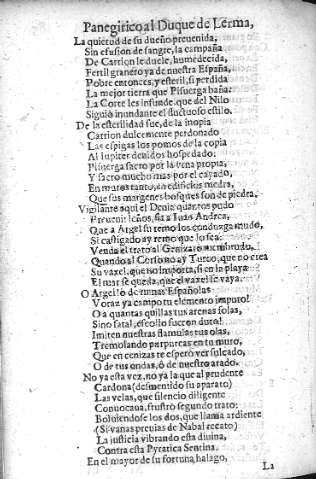 Panegirico, al Duque de Lerma,
La quietud de su dueño preuenida,
Sin efusion de sangre, la campaña
De Carrion le duele, humedecida,
Fertil granero ya de nuestra España,
Pobre entonces, y esteril, si perdida
La mejor tierra que Pisuerga baña:
La Corte les infunde, que del Nilo
Siguiò inundante el fructuoso estilo.
De la esterilidad fue, de la inopia
Carrion dulcemente perdonado
Las espigas los pomos de la copia
Al Iupiter deuidos hospedado:
Pisuerga sacro por la vena propia,
Y sacro mucho mas por el cayado,
En muros tanto, en edificios medra,
Que sus margenes bosques son de piedra.
Vigilante aqui el Denis quantos pudo
Preuenir leños, fia a Iuan Andrea,
Que a Argel su remo los conduzga mudo,
Si castigado ay remo que lo sea:
Venda el trato al Genizaro
Quando al Corso no ay Turco, que no crea
Su vaxel, que no importa, si en la playa
El mar se queda, que el vaxel se vaya.
O Argel! ò de ruinas Españolas
Voraz ya campo tu elemento impuro!
O a quantas quillas tus arenas solas,
Sino fatal, escollo fueron duro!
Imiten nuestras flamulas tus olas,
Tremolando purpureas en tu muro,
Que en cenizas te esperò ver sulcado,
O de tus ondas, ò de nuestro arado.
No ya esta vez, no ya la que al prudente
Cardona (desmentido su aparato)
Las velas, que silencio diligente
Conuocaua, frustrò segundo trato:
Boluiendose los dos, que llama ardiente
(Si vanas preuias de Nabal recato)
La justicia vibrando esta diuina,
Contra esta Pyratica Sentina.
En el mayor de su fortuna halago,
La